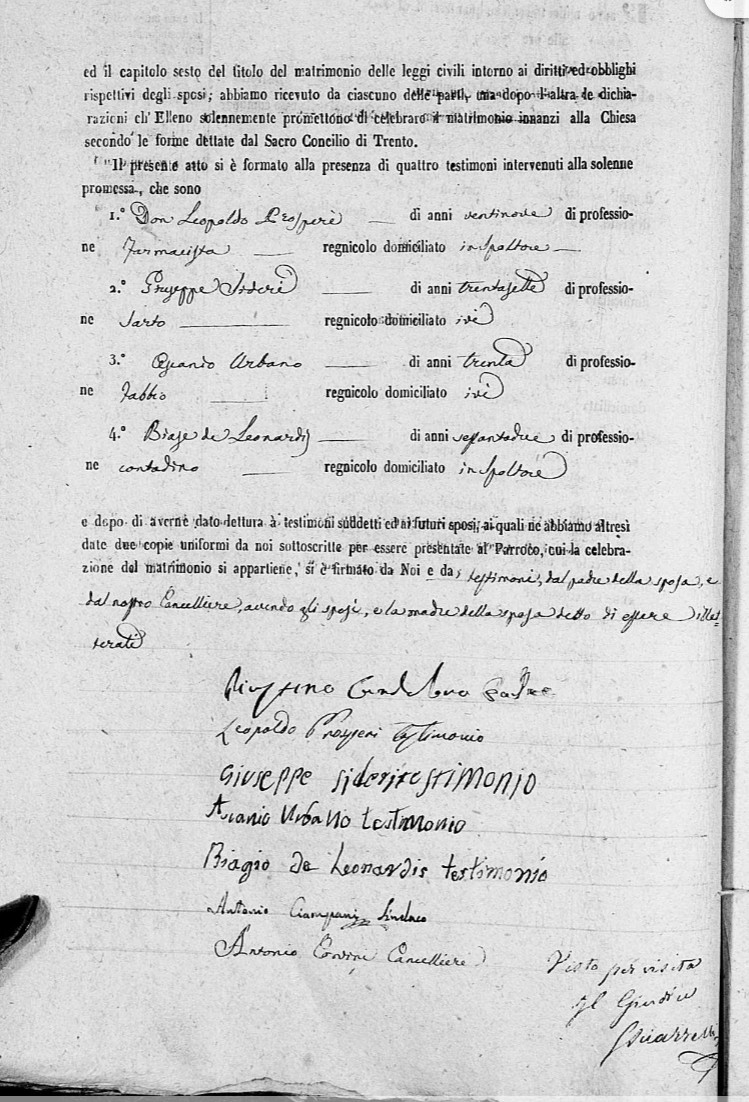 ed il capitolo sesto del titolo del matrimonio delle leggi civili intorno ai diritti ed obblighi
rispettivi degli sposi; abbiamo ricevuto da ciascuno delle parti, una dopo l'altra le dichia-
razioni ch' Elleno solennemente promettono di celebrare il matrimonio innanzi alla Chiesa
secondo le forme dettate dal Sacro Concilio di Trento.
Il presente atto si è formato alla presenza di quattro testimoni intervenuti alla solenne
promessa, che sono
1.° Don Leopoldo Prosperi di anni ventinove di professio-
ne Farmacista regnicolo domiciliato in Spoltore
2.° Giuseppe Sideri di anni trentasette di professio-
ne Sarto regnicolo domiciliato ivi
3.° Urbano di anni trenta di professio-
ne regnicolo domiciliato ivi
4.° Biase de Leonardis di anni di professio-
ne contadino regnicolo domiciliato in Spoltore
e dopo di averne dato lettura à testimoni suddetti ed ai futuri sposi, ai quali ne abbiamo altresì
date due copie uniformi da noi sottoscritte per essere presentate al Parroco, cui la celebra-
zione del matrimonio si appartiene, si è firmato da Noi e da testimoni, dal padre della sposa, e
dal nostro Cancelliere, avendo gli sposi, e la madre della sposa detto di essere illet
terati
Padre
Leopoldo Prosperi testimonio
Giuseppe Sideri testimonio
Ascanio Urbano testimonio
Biagio de Leonardis testimonio
Antonio Ciampani Sindaco
Antonio Cancelliere
Visto per visita
Il Giudice